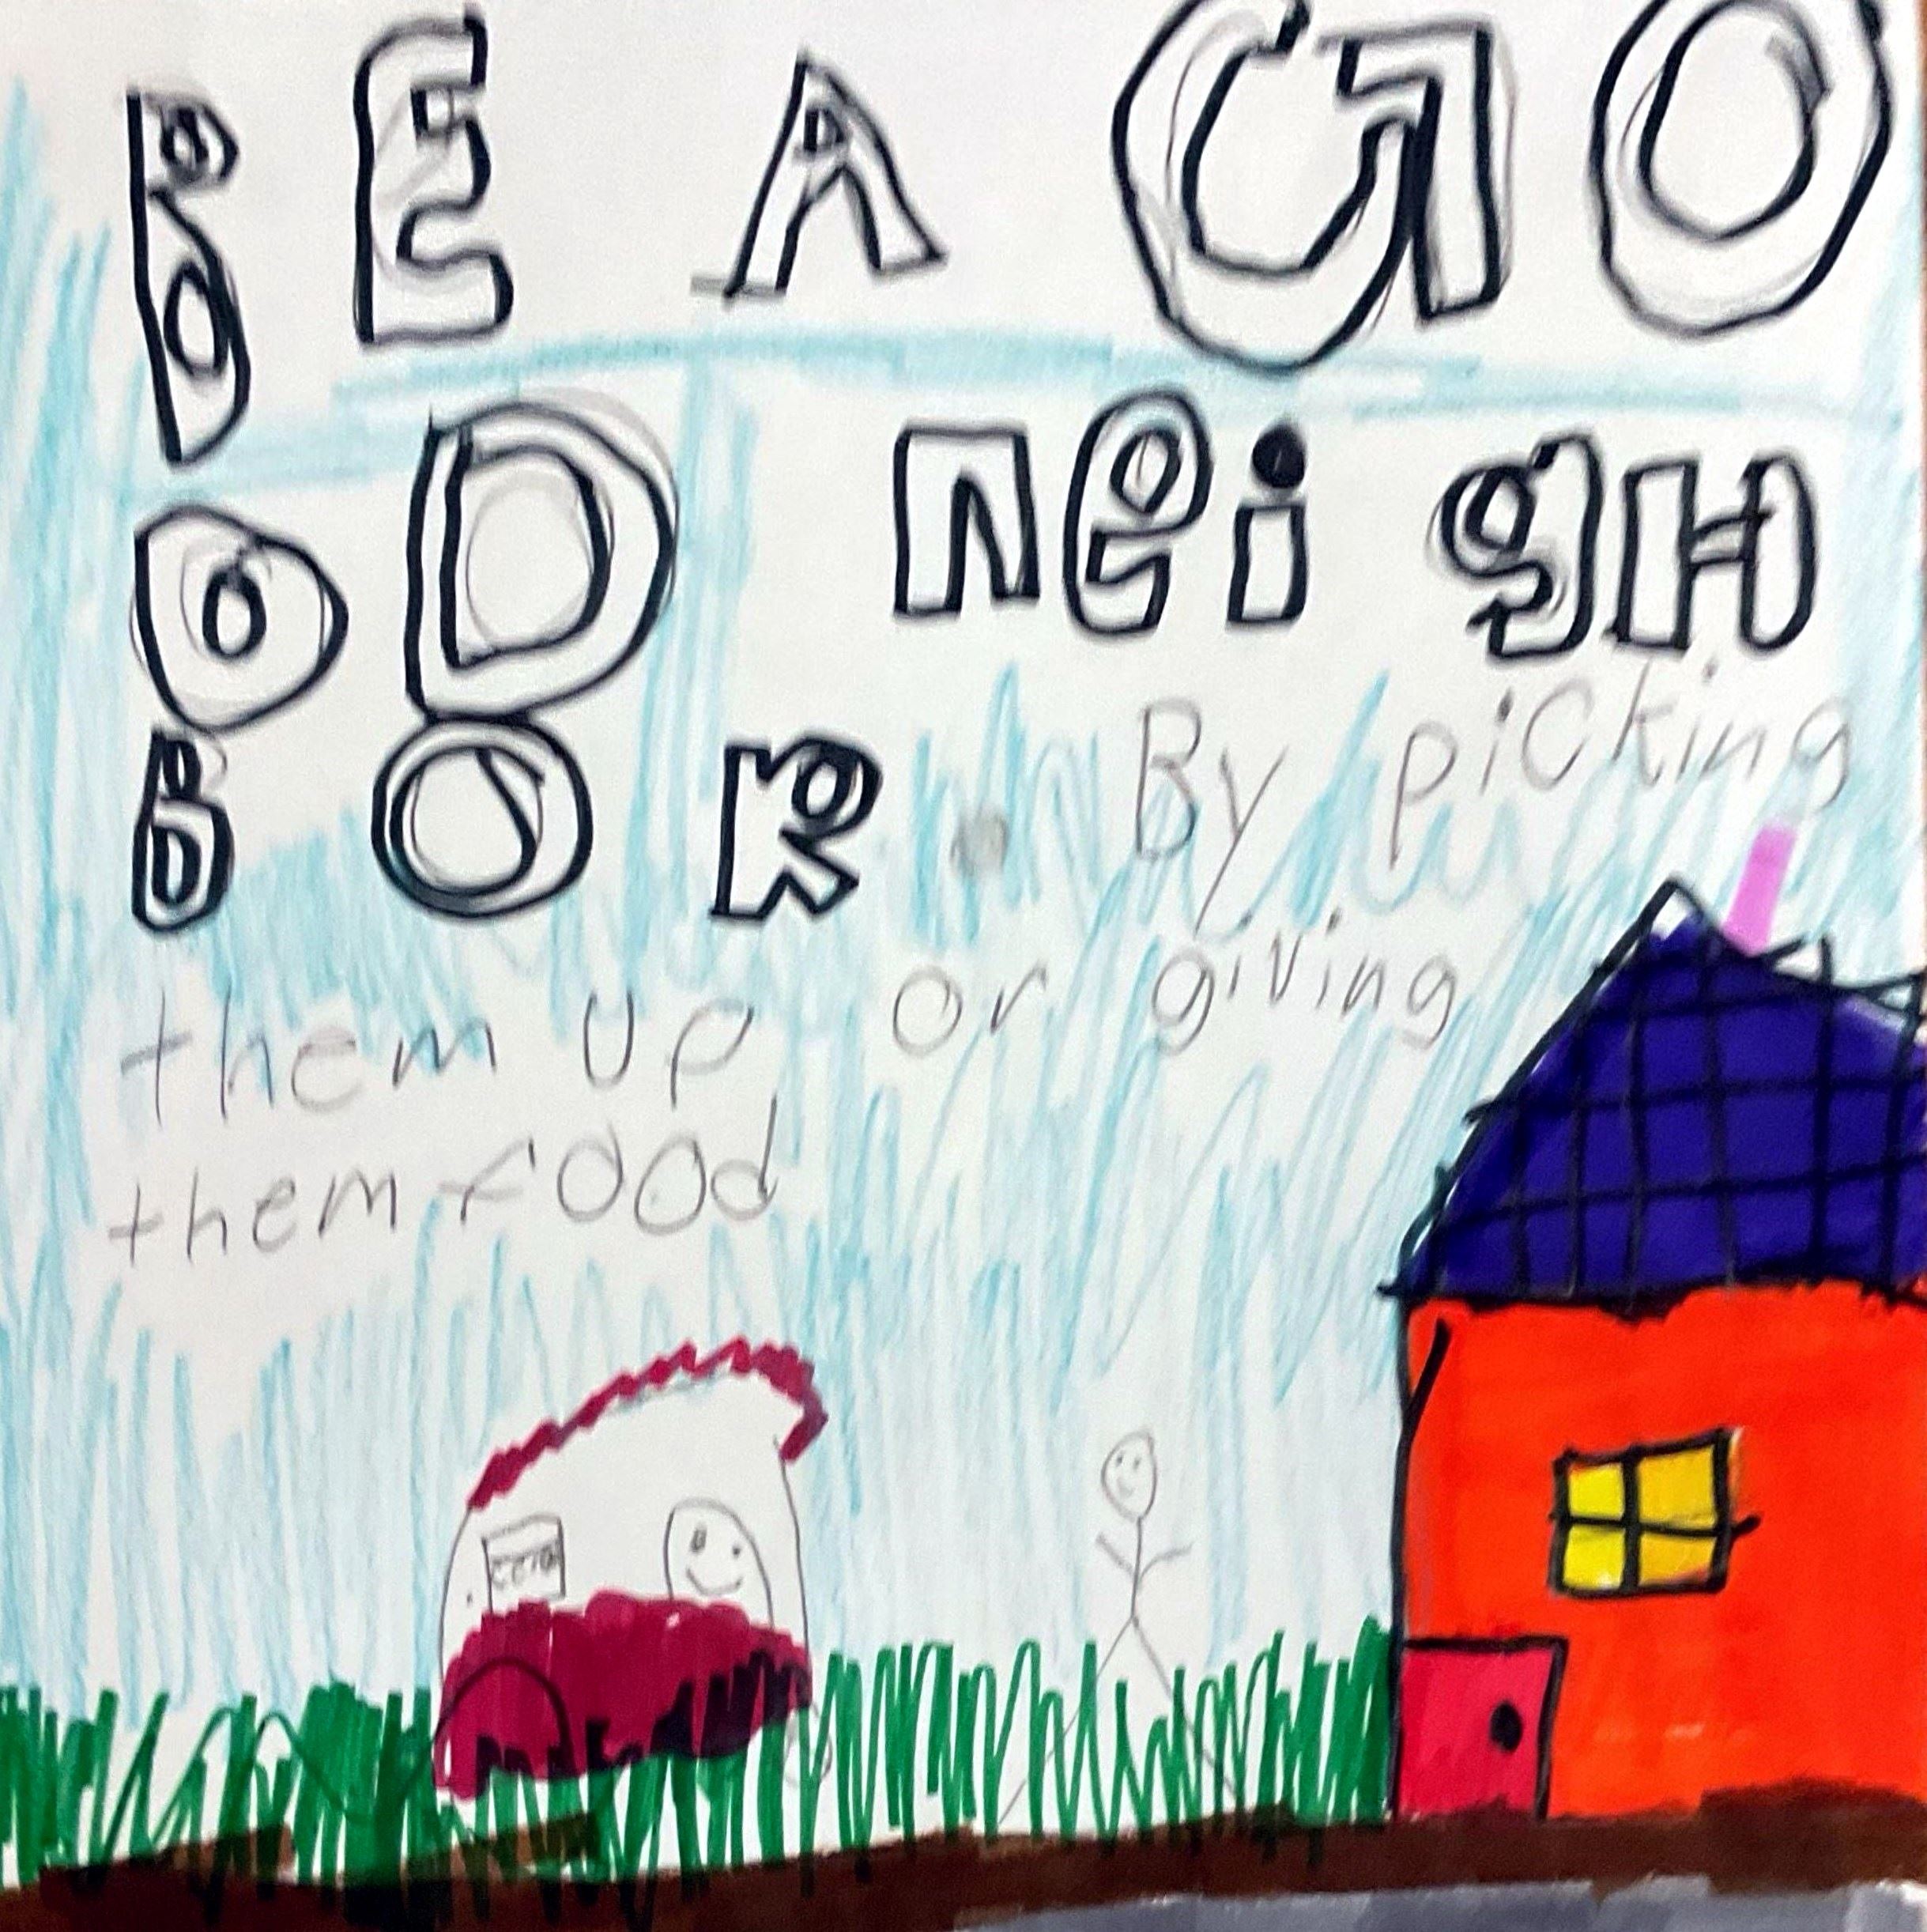 BE A GO
OD neigH
BOR. By picking
them up or giving
them food